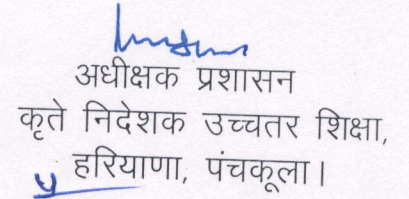 अधीक्षक प्रशासन
कृते निदेशक उच्चतर शिक्षा,
हरियाणा, पंचकूला।